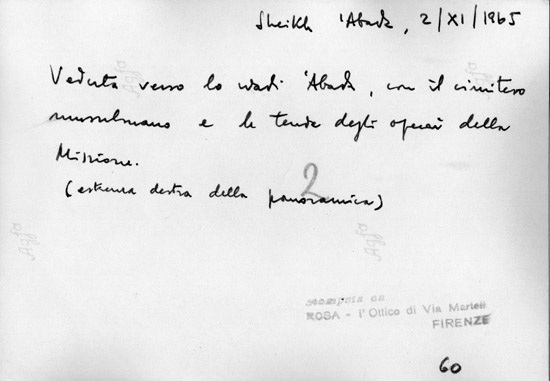 Sheikh 'Abada, 2/XI/1965
Veduta verso lo wadi 'Abada, con il cimitero
musulmano e le tende degli operai della
Missione.
(estrema destra della panoramica)
2
ROSA - l'Ottico di Via Martelli
FIRENZE
60